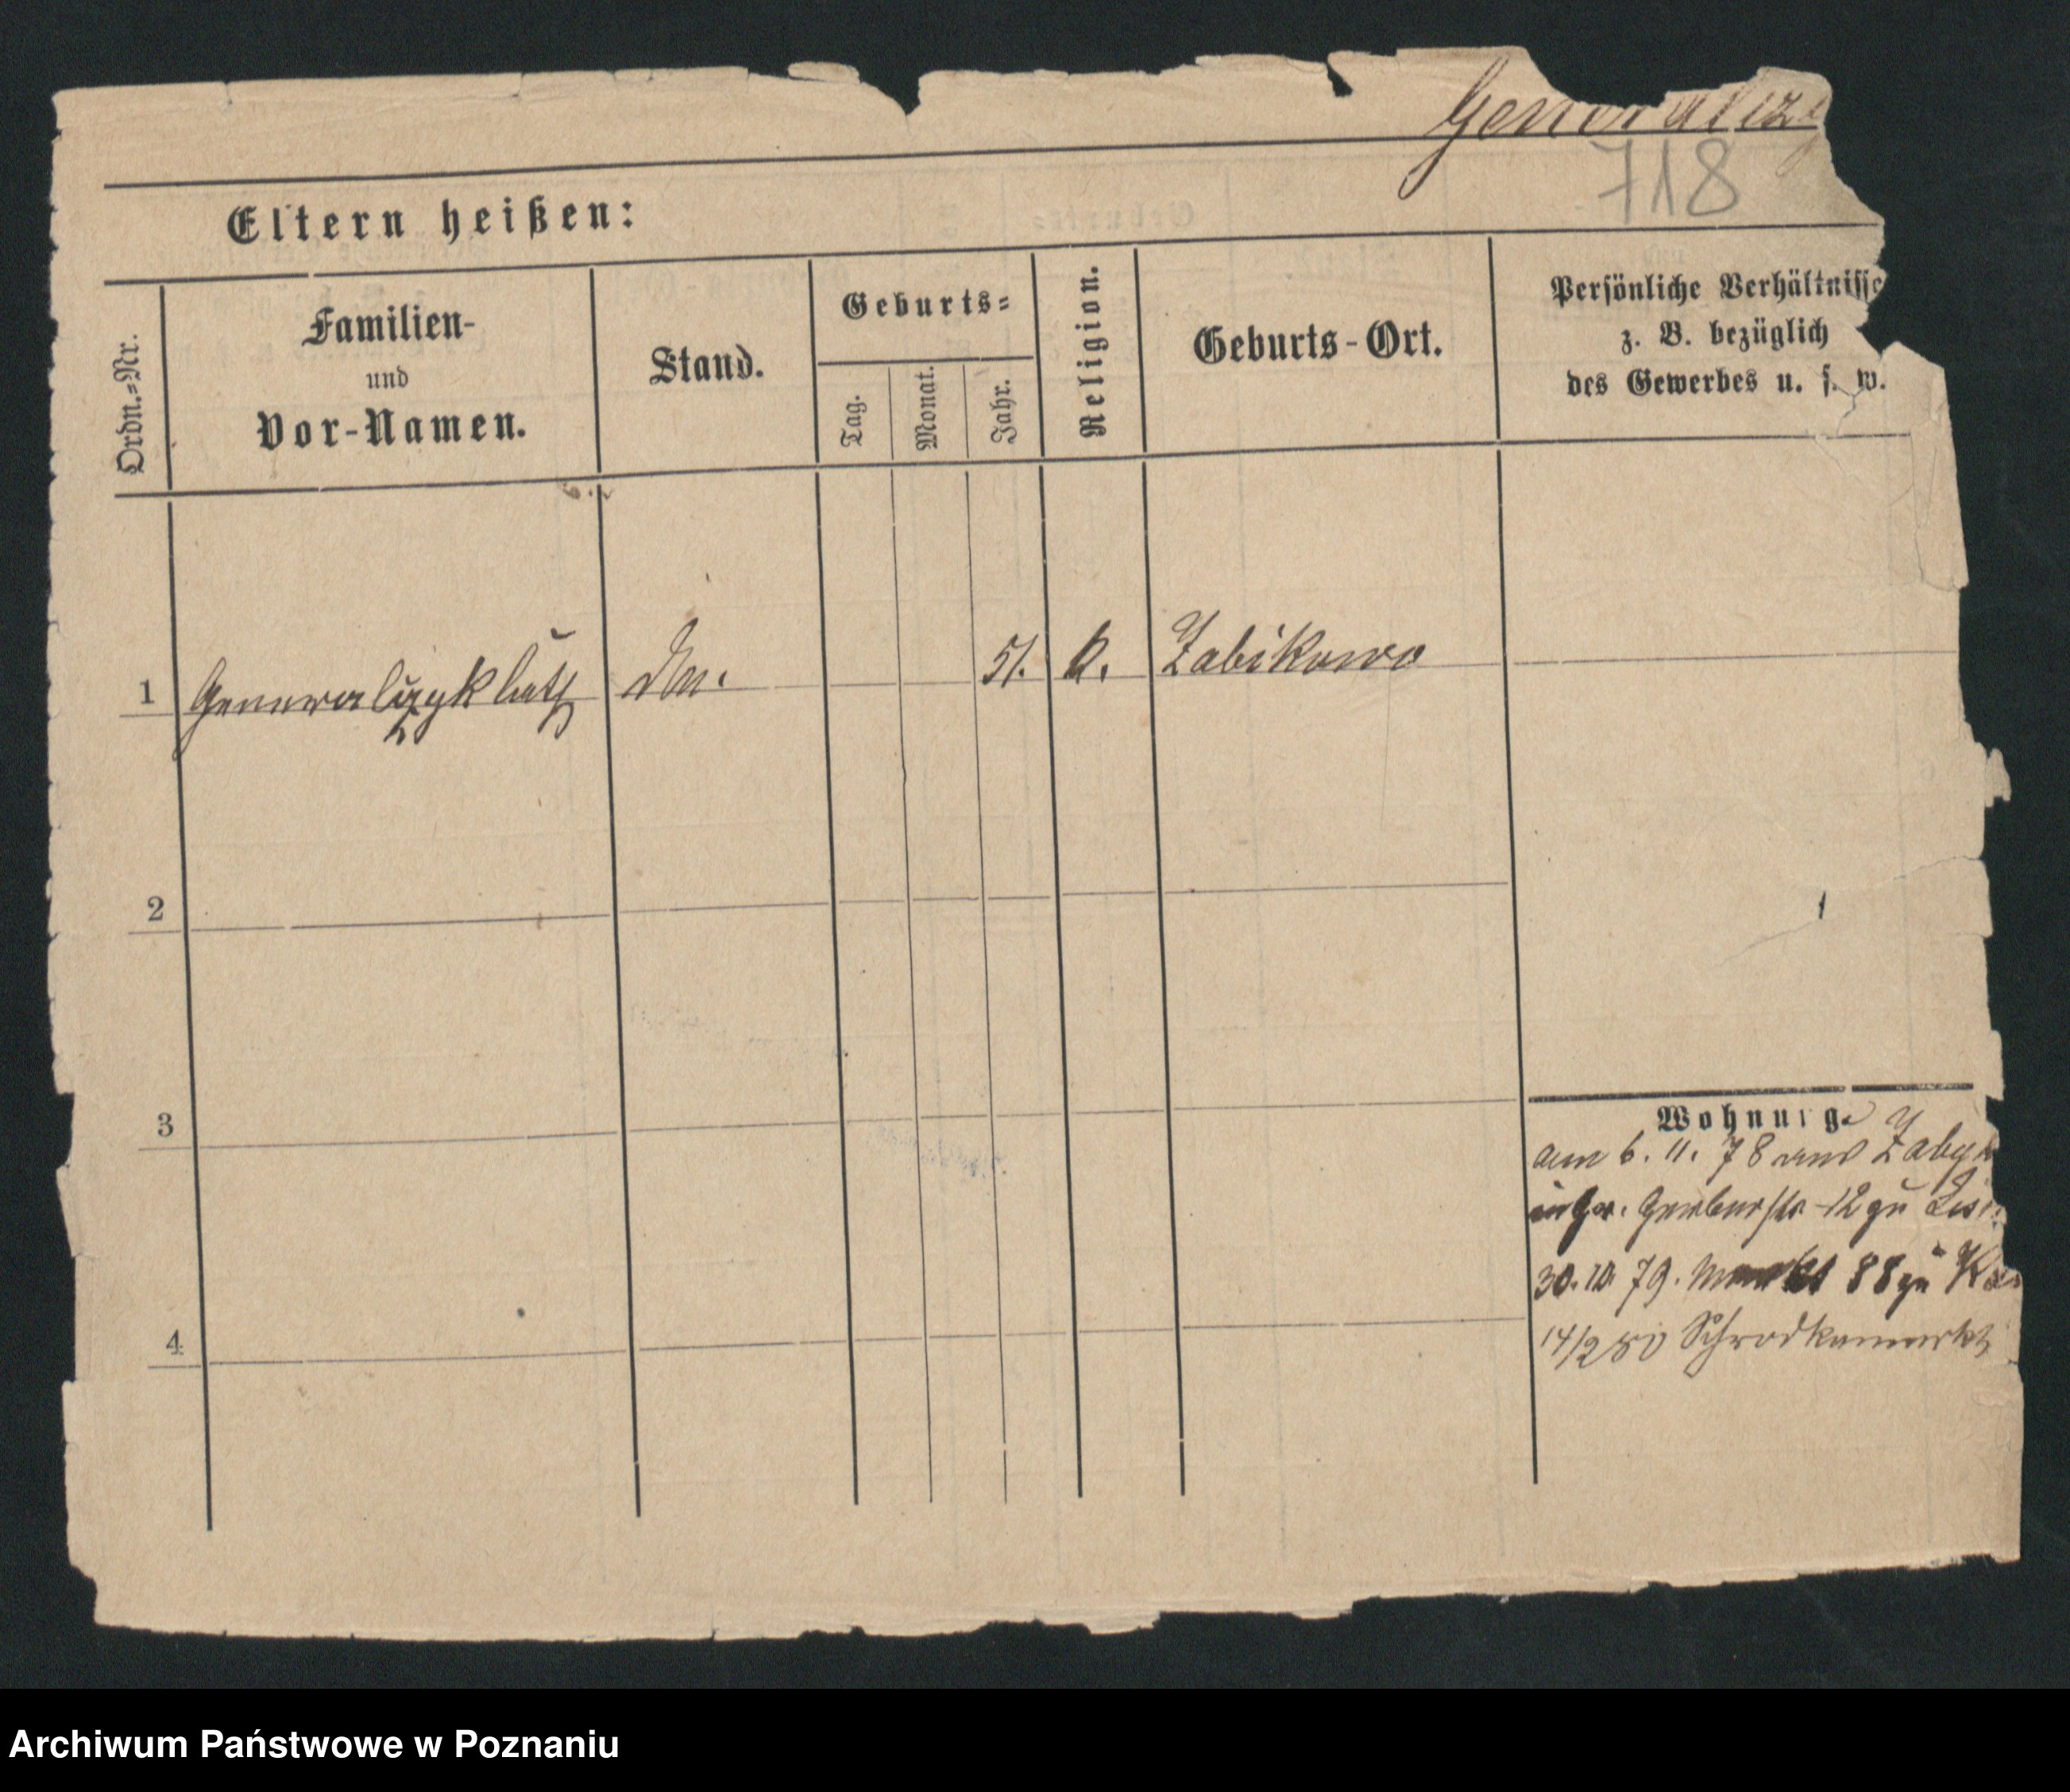 Generalizy
718
Eltern heißen:
Ordn.=Nr.
Familien-
und
Vor-Namen.
Stand.
Geburts=
Tag.
Monat.
Jahr.
Religion.
Geburts-Ort.
Persönliche Verhältnisse
z. B. bezüglich
des Gewerbes u. s. w.
1 Generalizyk 51. k. Zabikowo
2
3
4
Wohnung
am 6. 11. 78 aus Zabyk
in Gr. Gerberstr 12 zu
30. 10. 79. Markt 88 zu
14/2 80 Schrodkamarkt
Archiwum Państwowe w Poznaniu